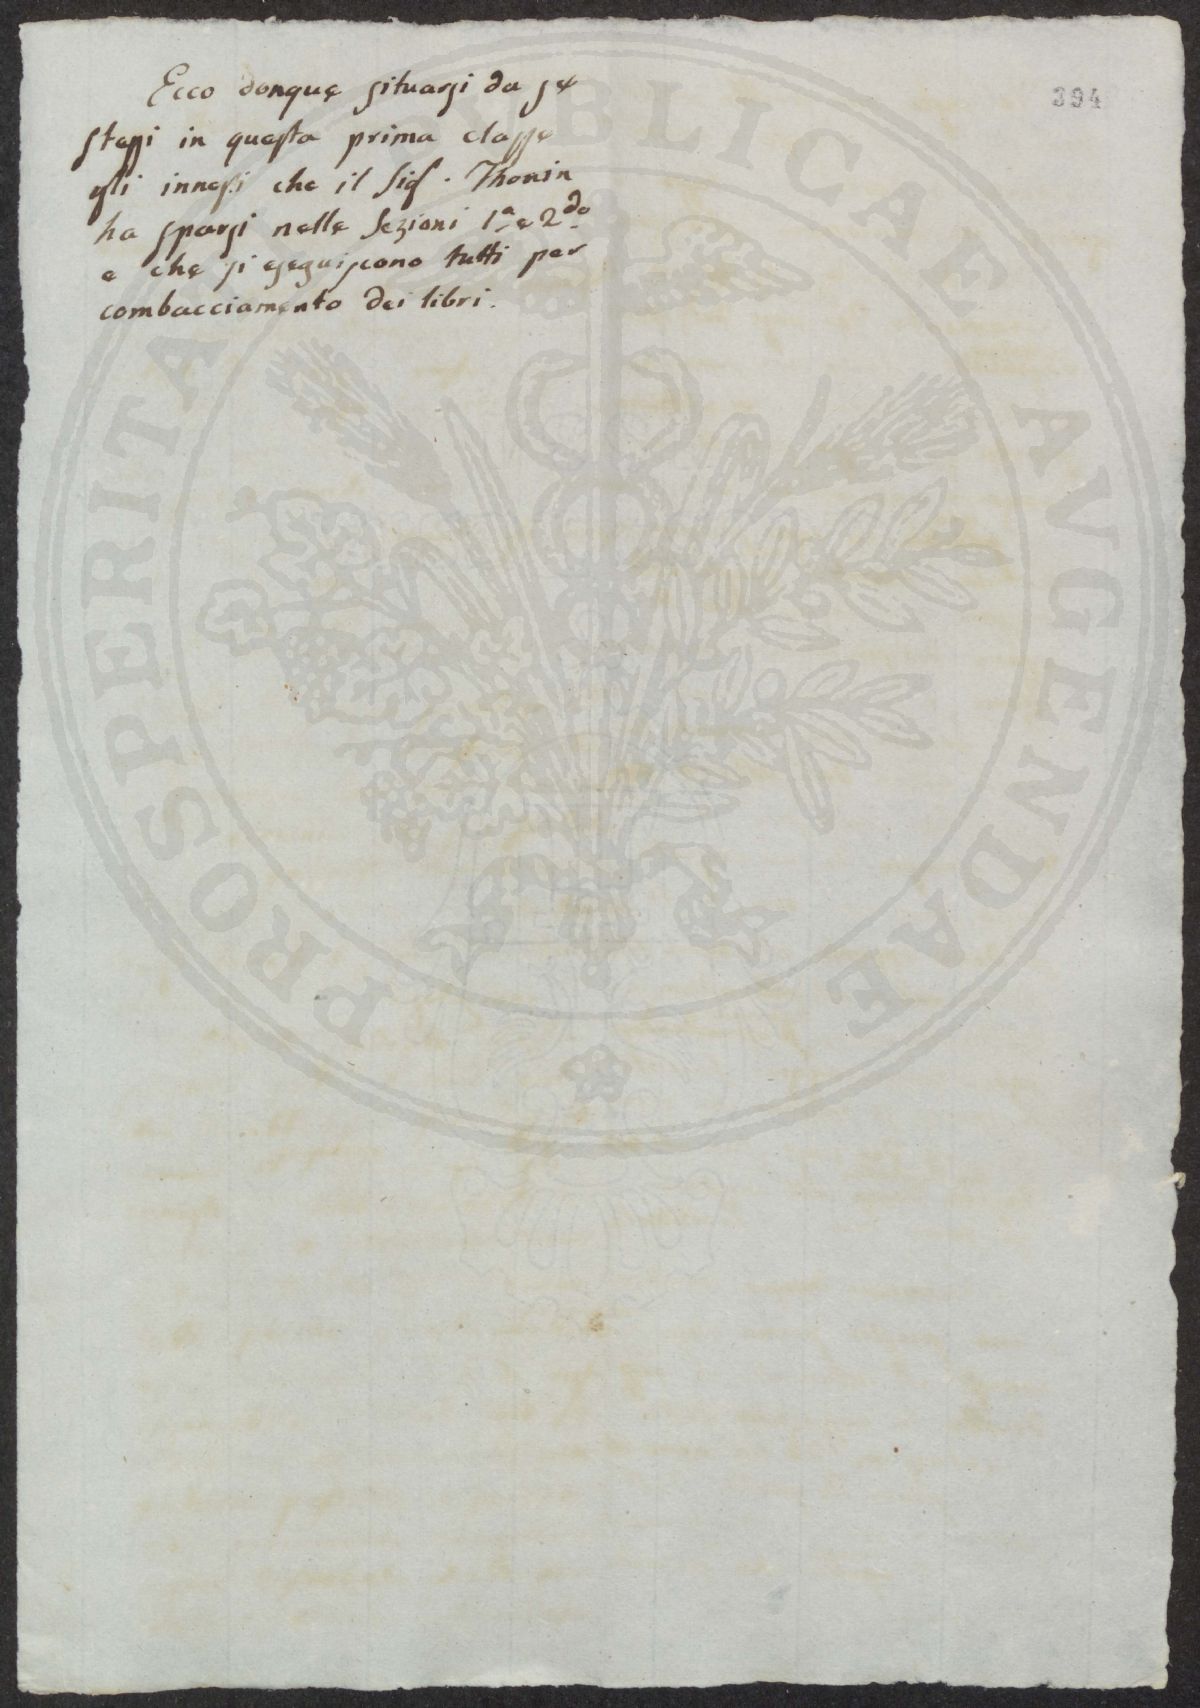 394
Ecco donque situarsi da se
stessi in questa prima classe
gli innesti che il Sig. Thouin
ha sparsi nelle Sezioni 1a e 2da
e che si eseguiscono tutti per
combacciamento dei libri.
PROSPERITA BLICAE AVGENDAE